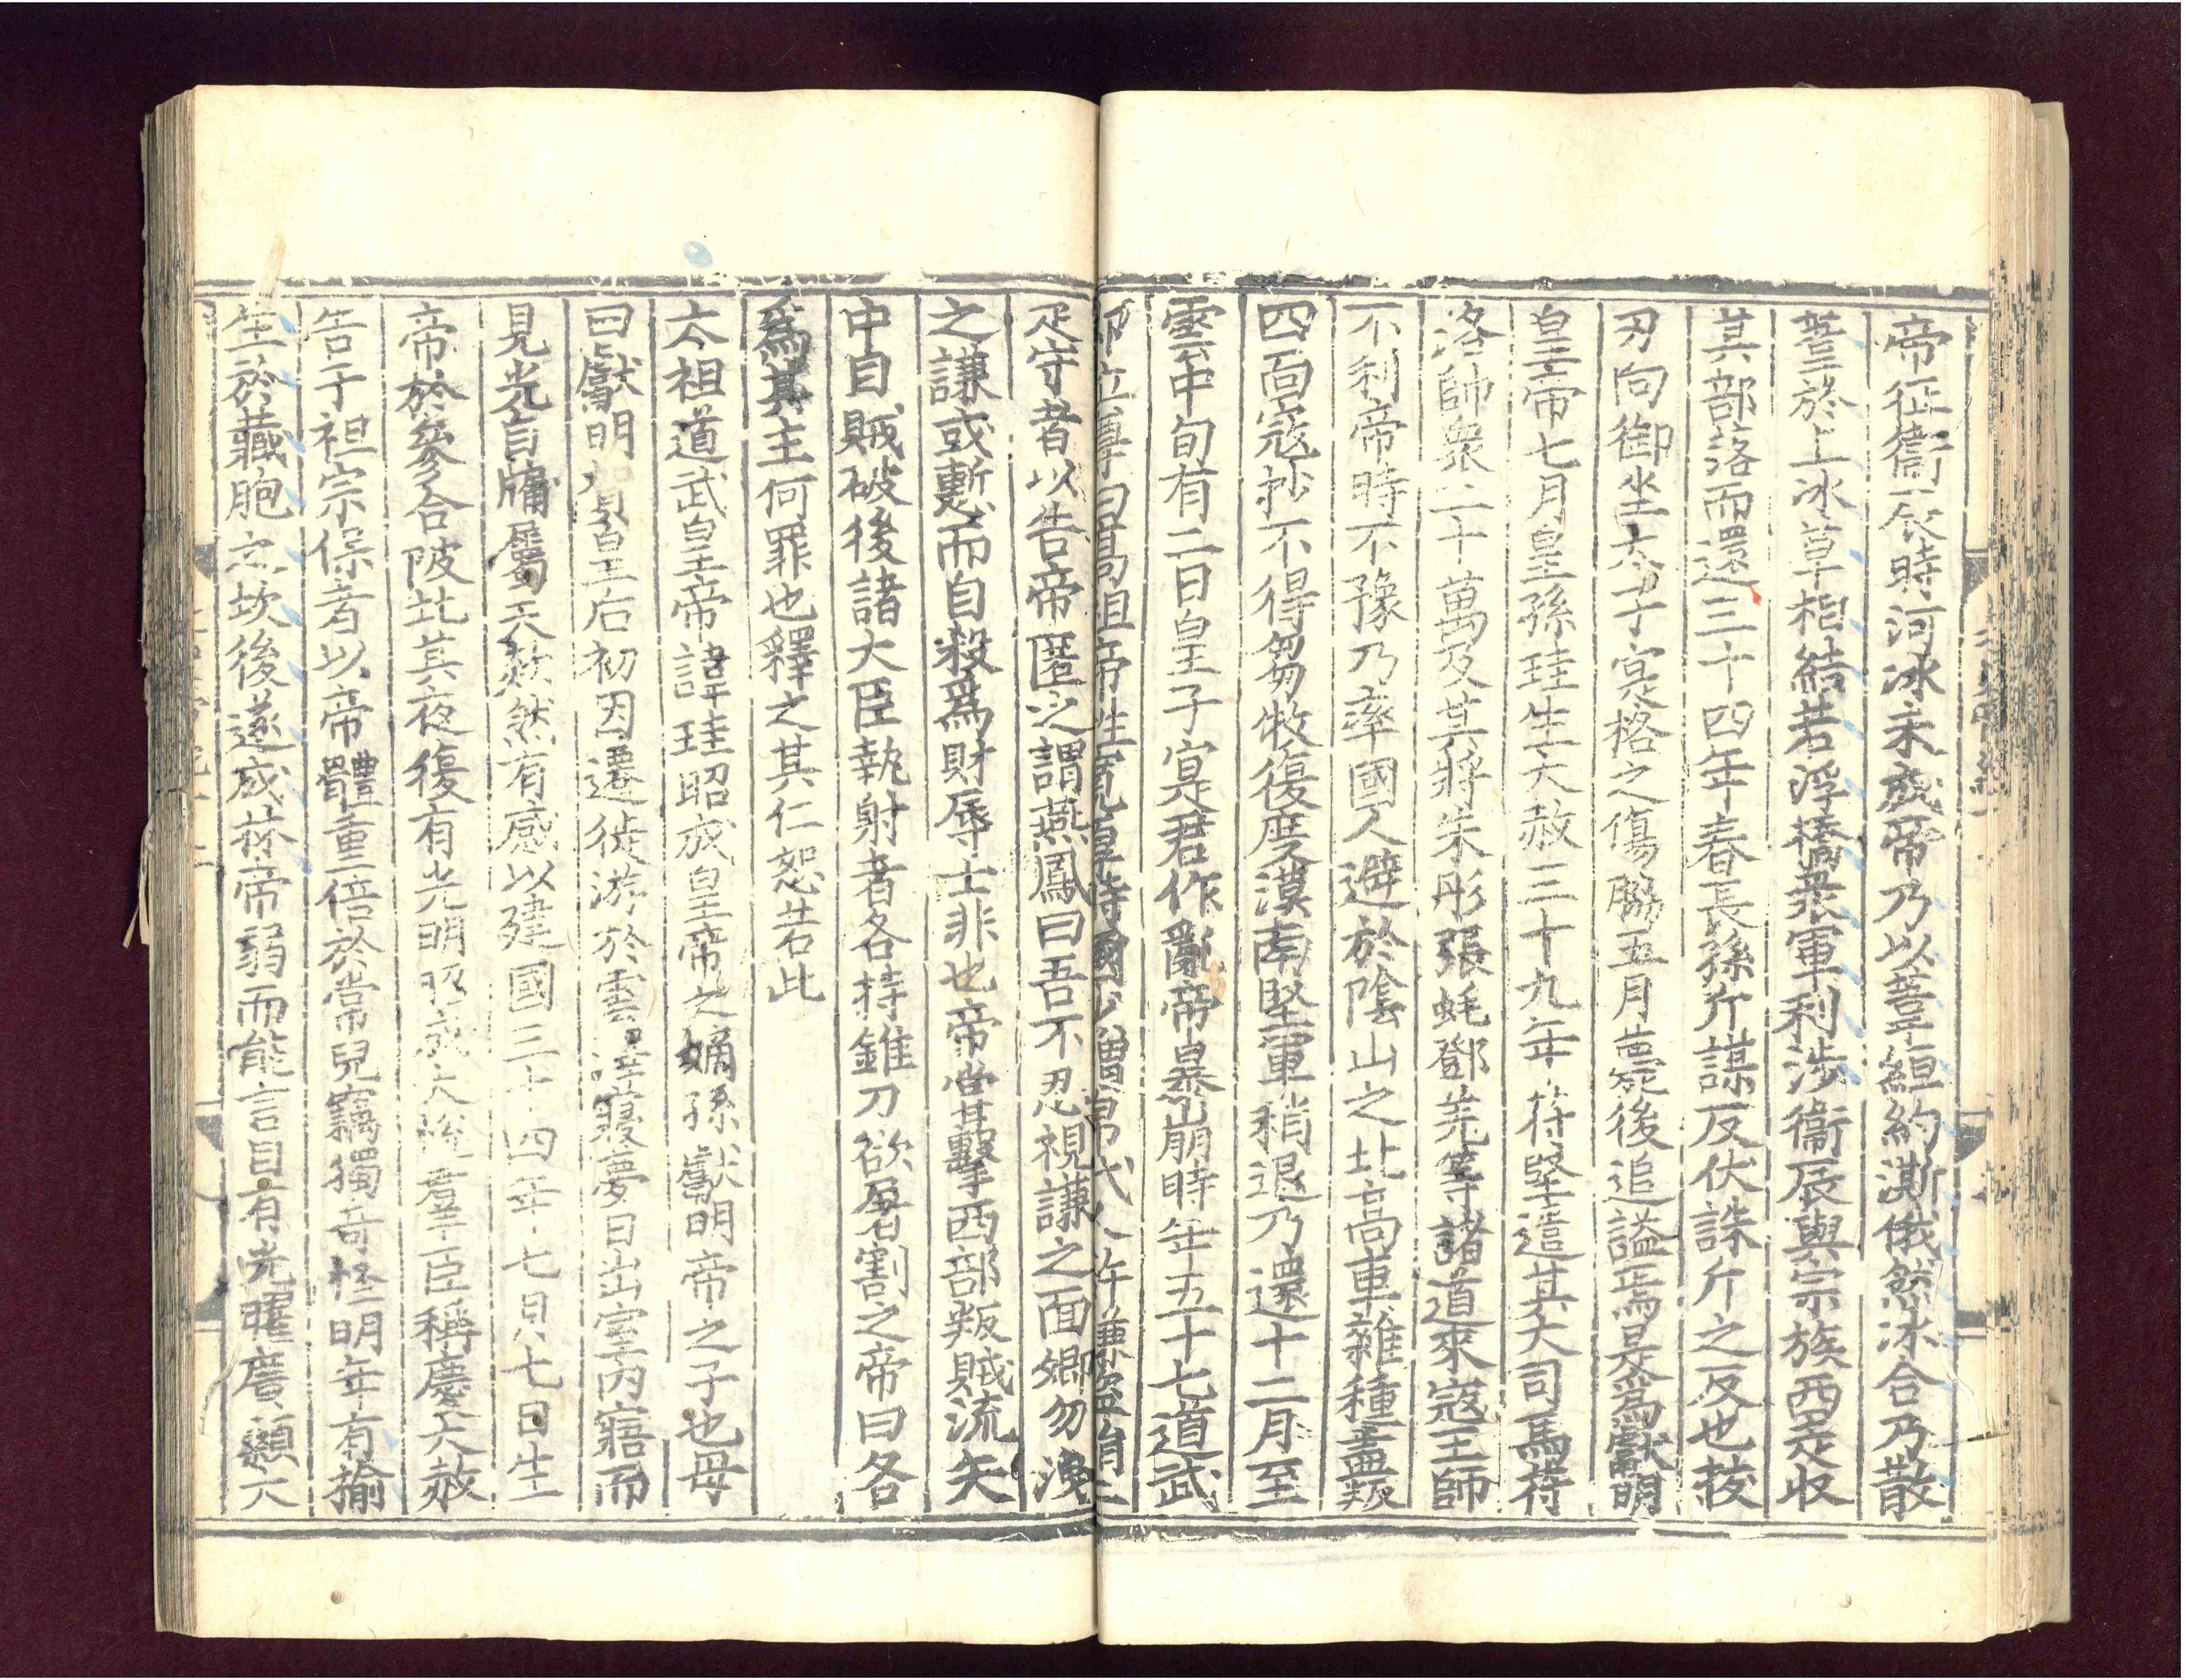 帝征衛辰時河冰未成帝乃以葦絙約澌俄然冰合乃散
葦於上冰草相結若浮橋衆軍利涉衞辰與宗族西走收
其部落而還三十四年春長孫斤謀反伏誅斤之反也拔
刃向御坐太子寔格之傷脇五月薨後追謚焉是爲獻明
皇帝七月皇孫珪生大赦三十九年苻堅遣其大司馬苻
洛帥衆二十萬及其將朱彤張蚝鄧羌等諸道來寇王師
不利帝時不豫乃率國人避於陰山之北高車雜種盡叛
四面寇抄不得芻牧復度漠南堅軍稍退乃還十二月至
雲中旬有二日皇子寔君作亂帝暴崩時年五十七道武
即位尊曰高祖帝性寬厚時國少繒帛代人許謙盜絹二
疋守者以告帝匿之謂燕鳳曰吾不忍視謙之面卿勿洩
之謙或慙而自殺爲財辱士非也帝嘗擊西部叛賊流矢
中目賊破後諸大臣執射者各持錐刀欲屠割之帝曰各
爲其主何罪也釋之其仁恕若此
太祖道武皇帝諱珪昭成皇帝之嫡孫獻明帝之子也母
曰獻明賀皇后初因遷徙游於雲澤寢夢日出室內寤而
見光自牖屬天欻然有感以建國三十四年七月七日生
帝於參合陂北其夜復有光明昭成大悅羣臣稱慶大赦
告于祖宗保者以帝體重倍於常兒竊獨奇怪明年有揄
生於藏胞之坎後遂成林帝弱而能言目有光曜廣顙大